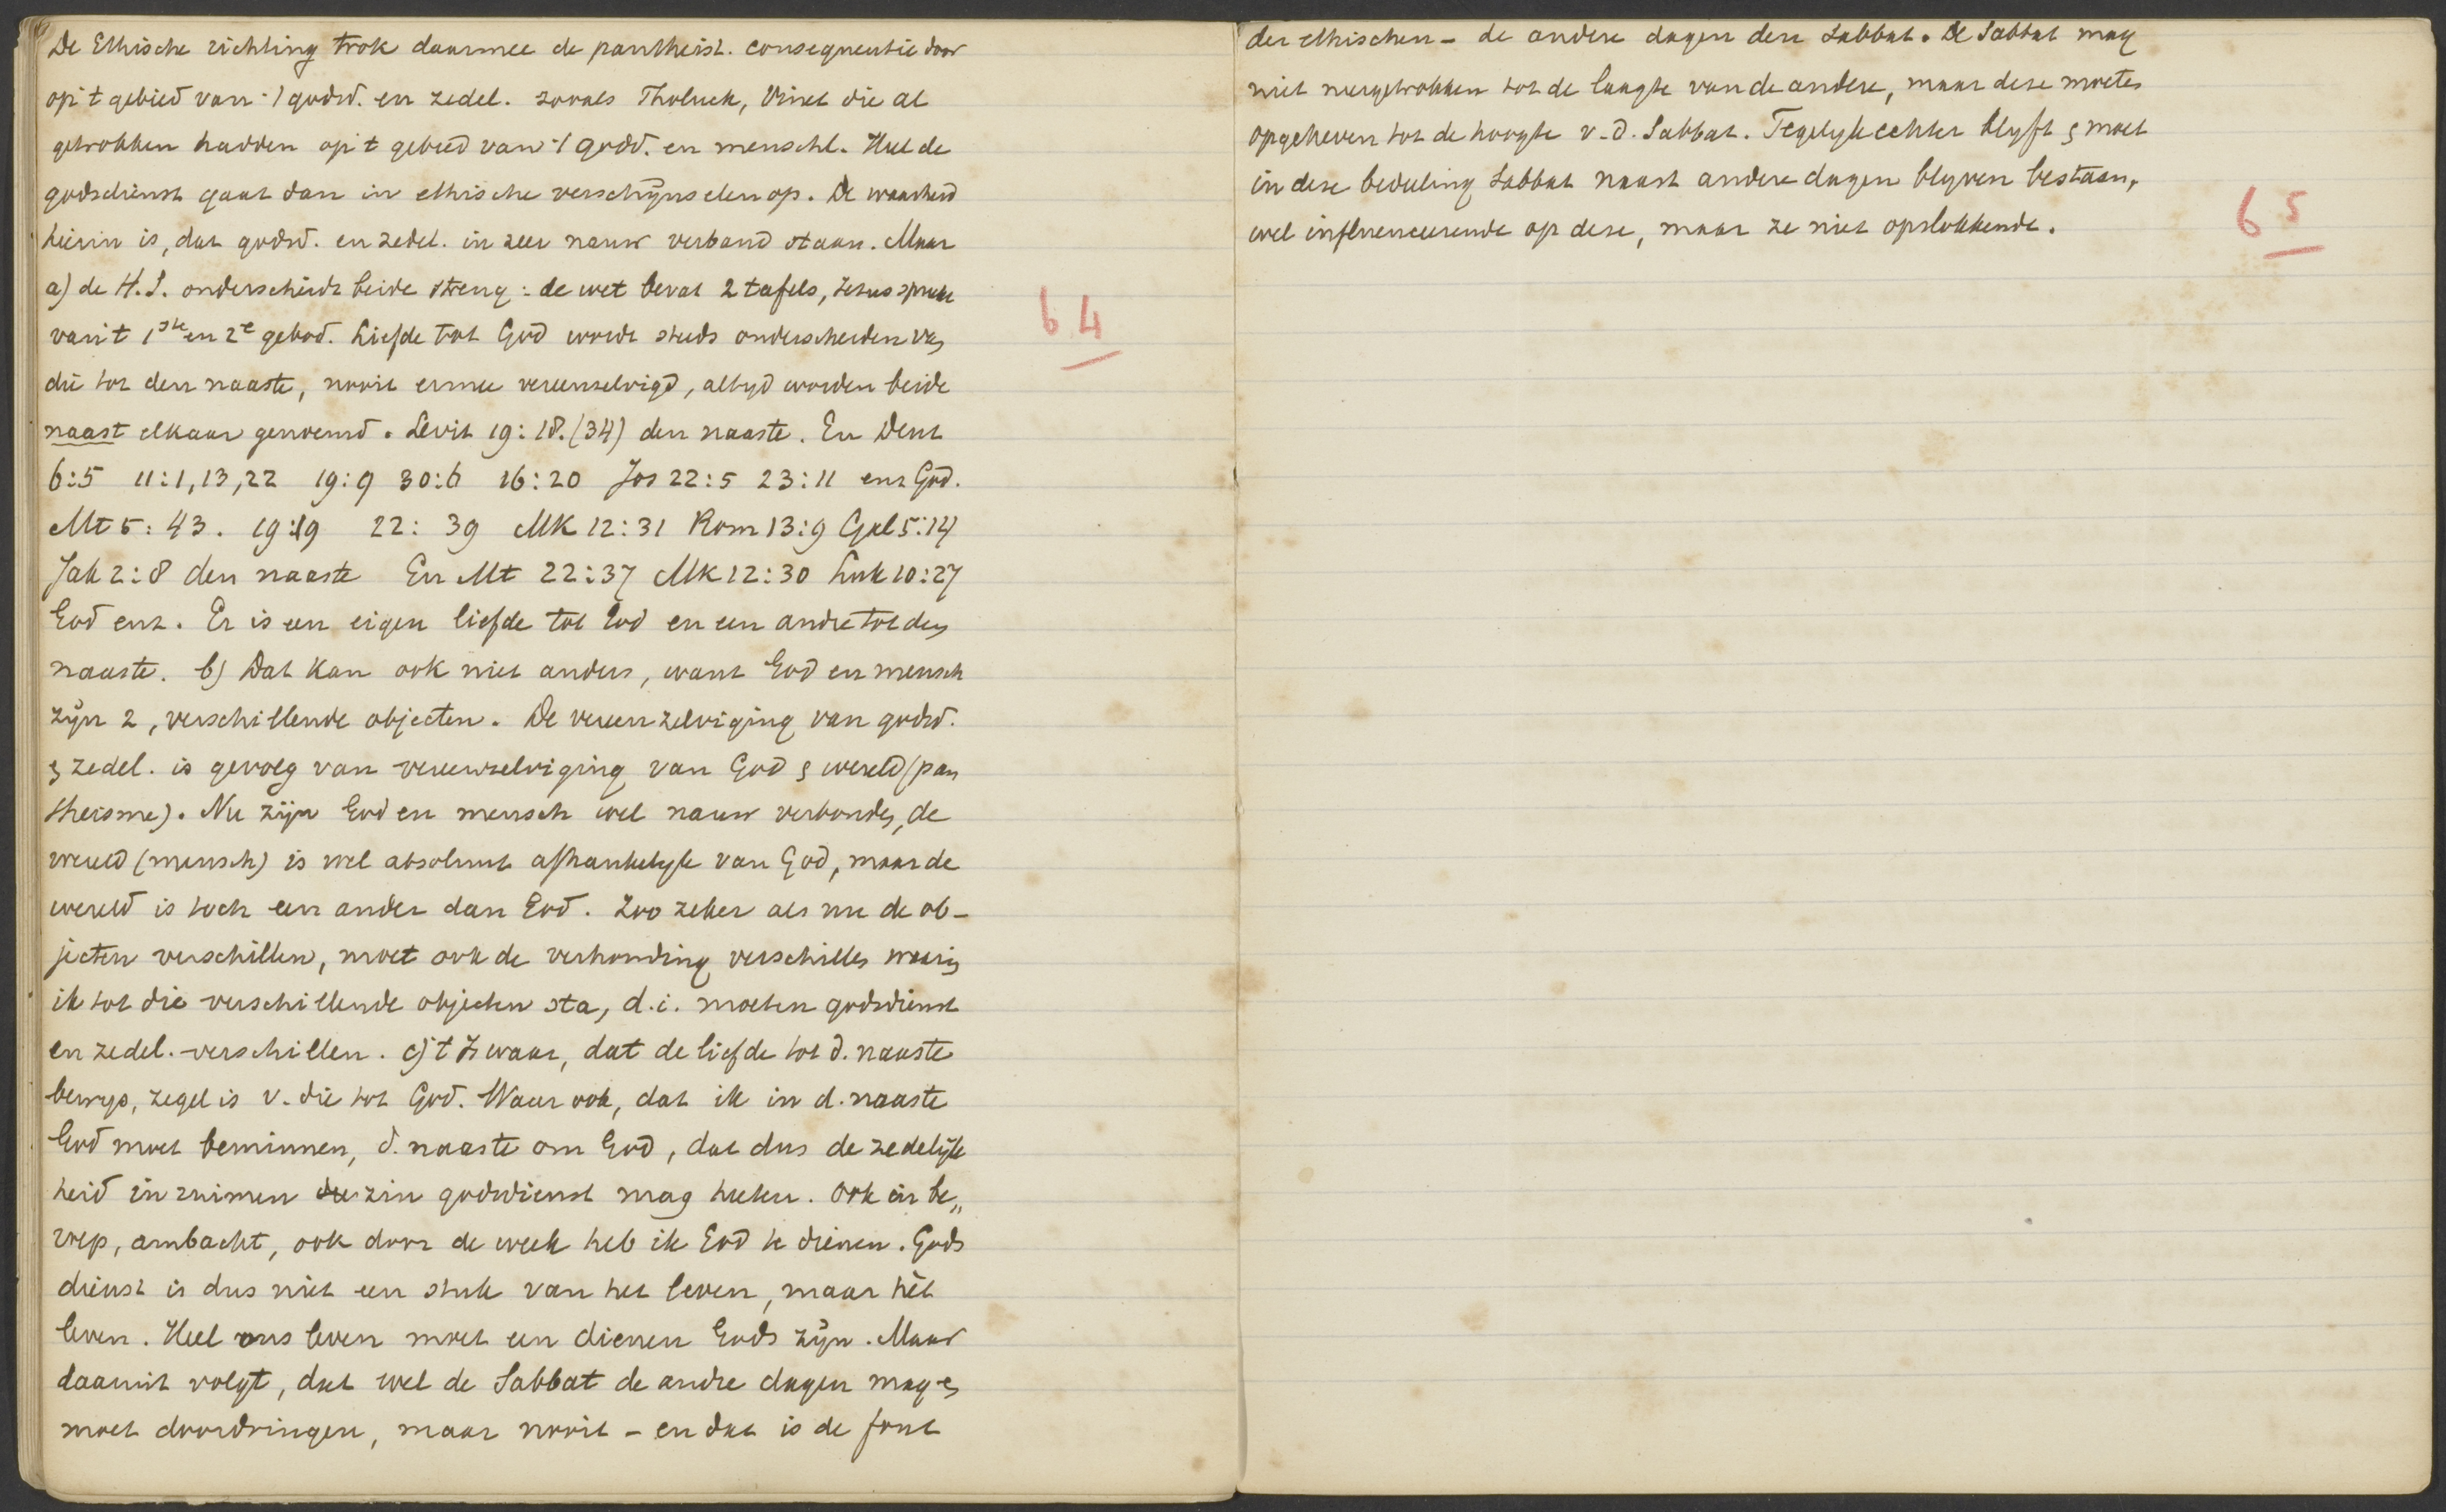 De Ethische richting trok daarmee de pantheist. consequentie door
op 't gebied van 't godsd. en zedel. zooals Tholuck, Vinet die al
getrokken hadden op 't gebied van 't godd. en menschl. Heel de
godsdienst gaat dan in ethische verschijnselen op. De waarheid
hierin is, dat godsd. en zedel. in zeer nauw verband staan. Maar
a) de H.S. onderscheidt beide streng: de wet bevat 2 tafels, Jezus sprak
van 't 1ste en 2e gebod. Liefde tot God wordt steeds onderscheiden van
die tot den naaste, nooit ermee vereenzelvigd, altyd worden beide
naast elkaar genoemd. Levit 19:18.(34) den naaste. En Deut
6:5 11:1,13,22 19:9 30:6 16:20 Jos 22:5 23:11 enz God.
Mt 5:43. 19:19 22:39 Mk 12:31 Rom 13:9 Gal 5:14
Jak 2:8 den naaste En Mt 22:37 Mk 12:30 Luk 10:27
God enz. Er is een eigen liefde tot God en een andre tot den
naaste. b) Dat kan ook niet anders, want God en mensch
zijn 2, verschillende objecten. De vereenzelviging van godsd.
& zedel. is gevolg van vereenzelviging van God & wereld (pan
theisme). Nu zijn God en mensch wel nauw verbonden, de
wereld (mensch) is wel absoluut afhankelyk van God, maar de
wereld is toch een ander dan God. Zoo zeker als nu de ob-
jecten verschillen, moet ook de verhouding verschillen waarin
ik tot die verschillende objecten sta, d.i. moeten godsdienst
en zedel. verschillen. c) 't Is waar, dat de liefde tot d. naaste
bewys, zegel is v. die tot God. Waar ook, dat ik in d. naaste
God moet beminnen, d. naaste om God, dat dus de zedelijk
heid in ruimen zin godsdienst mag heeten. Ook in be„
roep, ambacht, ook door de week heb ik God te dienen. Gods
dienst is dus niet een stuk van het leven, maar hèt
leven. Heel ons leven moet een dienen Gods zijn. Maar
daaruit volgt, dat wel de Sabbat de andre dagen mag en
moet doordringen, maar nooit – en dat is de fout
64
der ethischen – de andere dagen den Sabbat. De Sabbat mag
niet neergetrokken tot de laagte van de andere, maar deze moeten
opgeheven tot de hoogte v. d. Sabbat. Tegelyk echter blyft & moet
in deze bedeeling Sabbat naast andere dagen blyven bestaan,
wel influenceerende op deze, maar ze niet opslokkende.
65